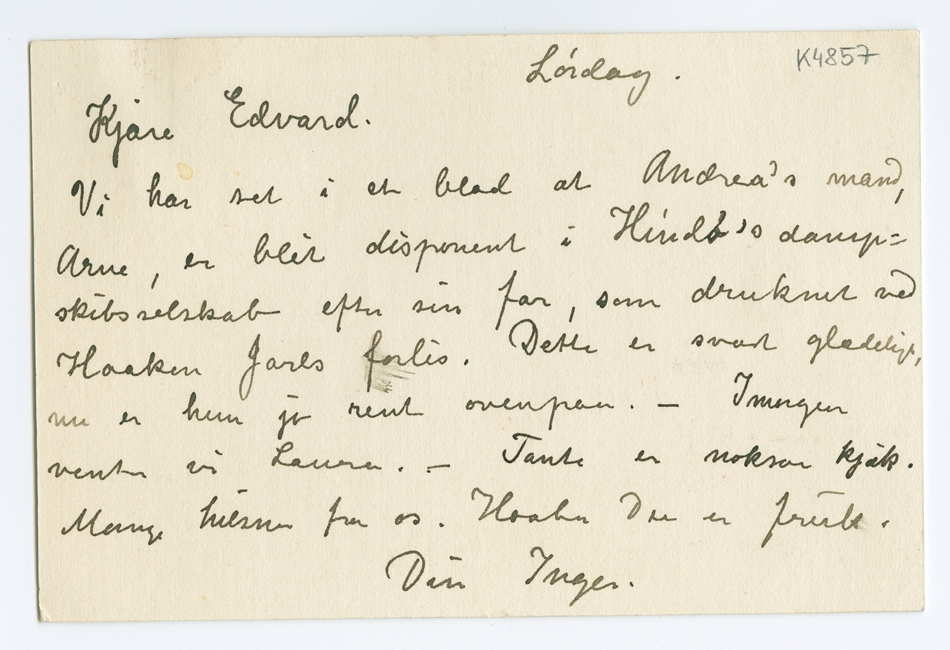 Lördag.
K4857
Kjære Edvard.
Vi har set i et blad at Andrea's mand,
Arne, er blit disponent i Hindö's damp=
skibsselskab efter sin far, som druknet ved
Haaken Jarls forlis. Dette er svært glædeligt,
nu er hun jo rent ovenpaa. — Imorgen
venter vi Laura. — Tante er noksaa kjæk.
Mange hilsner fra os. Haaber Du er frisk.
Din Inger.